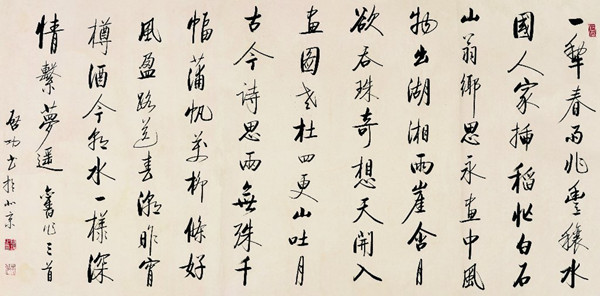 一犂春雨兆豐穰水
國人家插稻忙白石
山翁鄉思永畫中風
物出湖湘兩崖含月
欲吞珠奇想天開入
畫圖老杜四更山吐月
古今詩思兩無殊千
幅蒲帆萬柳條好
風盈路送春潮昨宵
樽酒今朝水一樣深
情繫夢遥 舊作三首
啟功書於北京